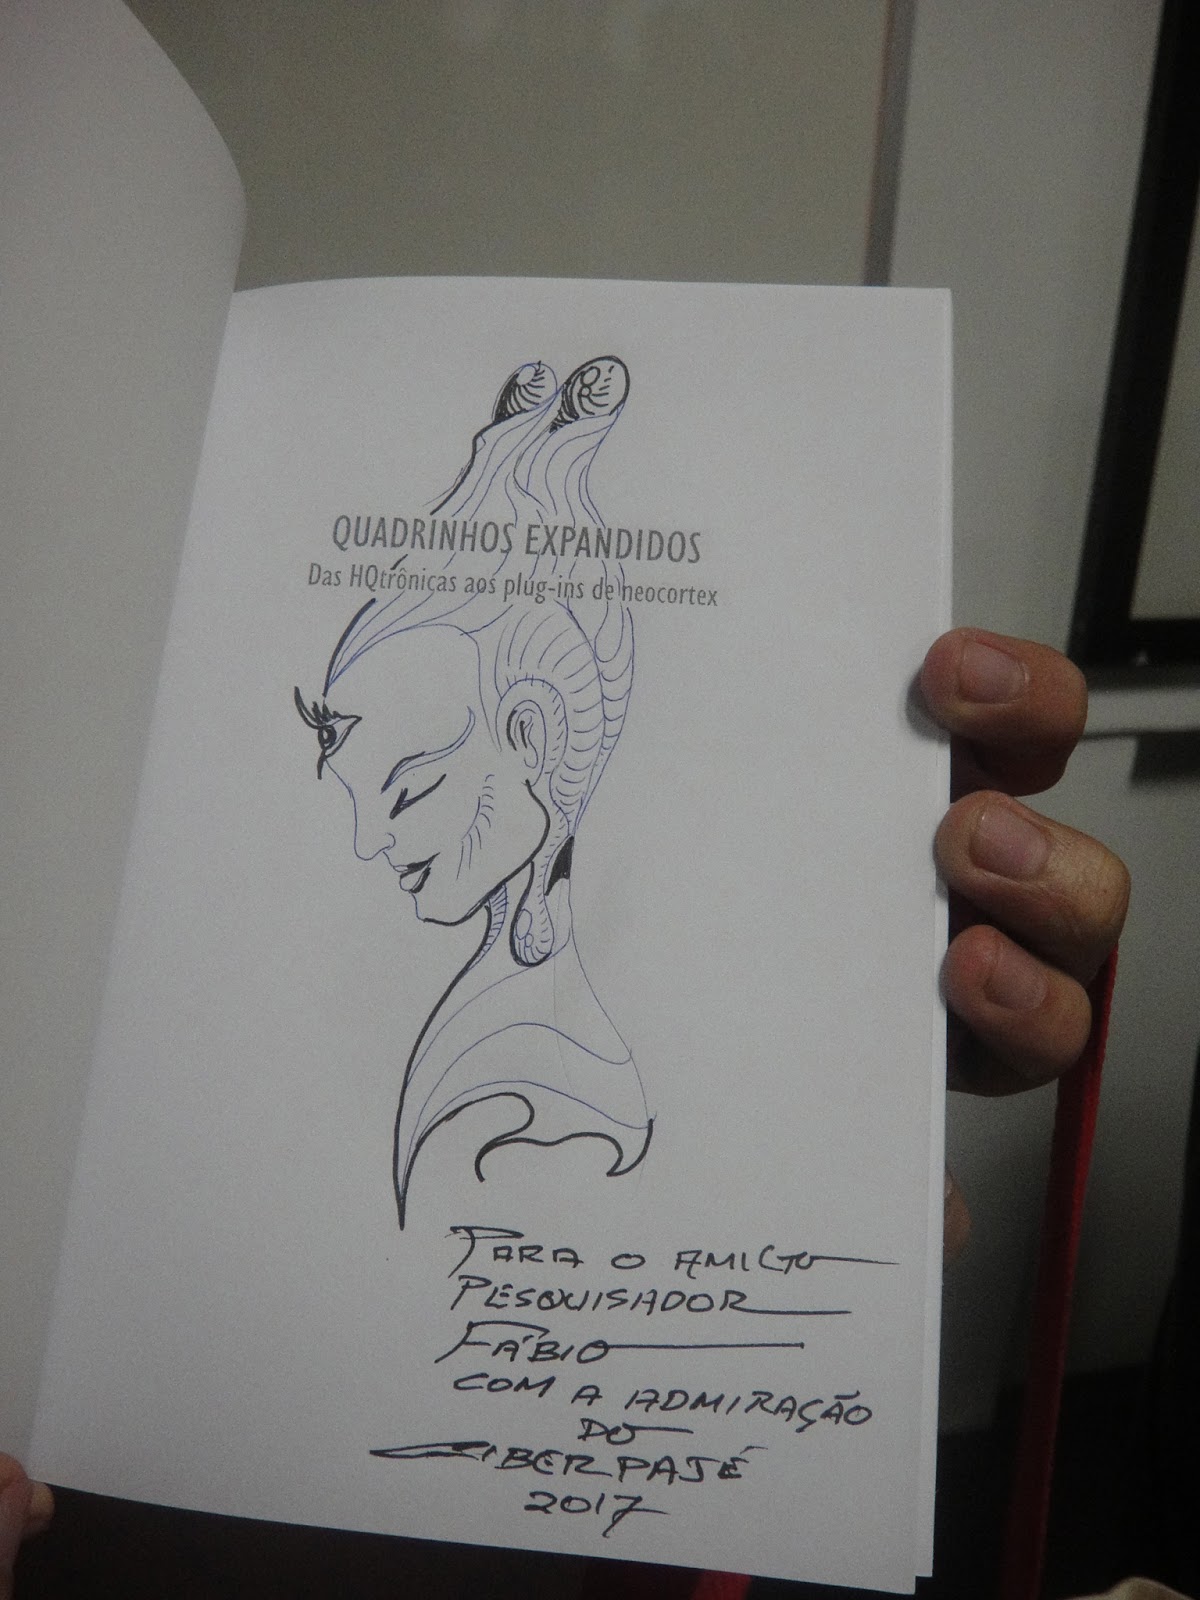 QUADRINHOS EXPANDIDOS
Das HQtrônicas aos plug-ins de neocortex
PARA O AMIGO
PESQUISADOR
FÁBIO
COM A ADMIRAÇÃO
DO
CIBERPAJÉ
2017